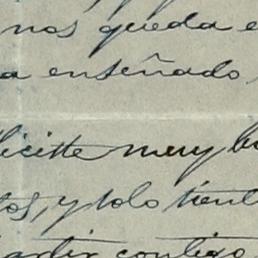 nos queda e
a enseñado,
licitte muy bi
tos, y solo tient
partir contigo